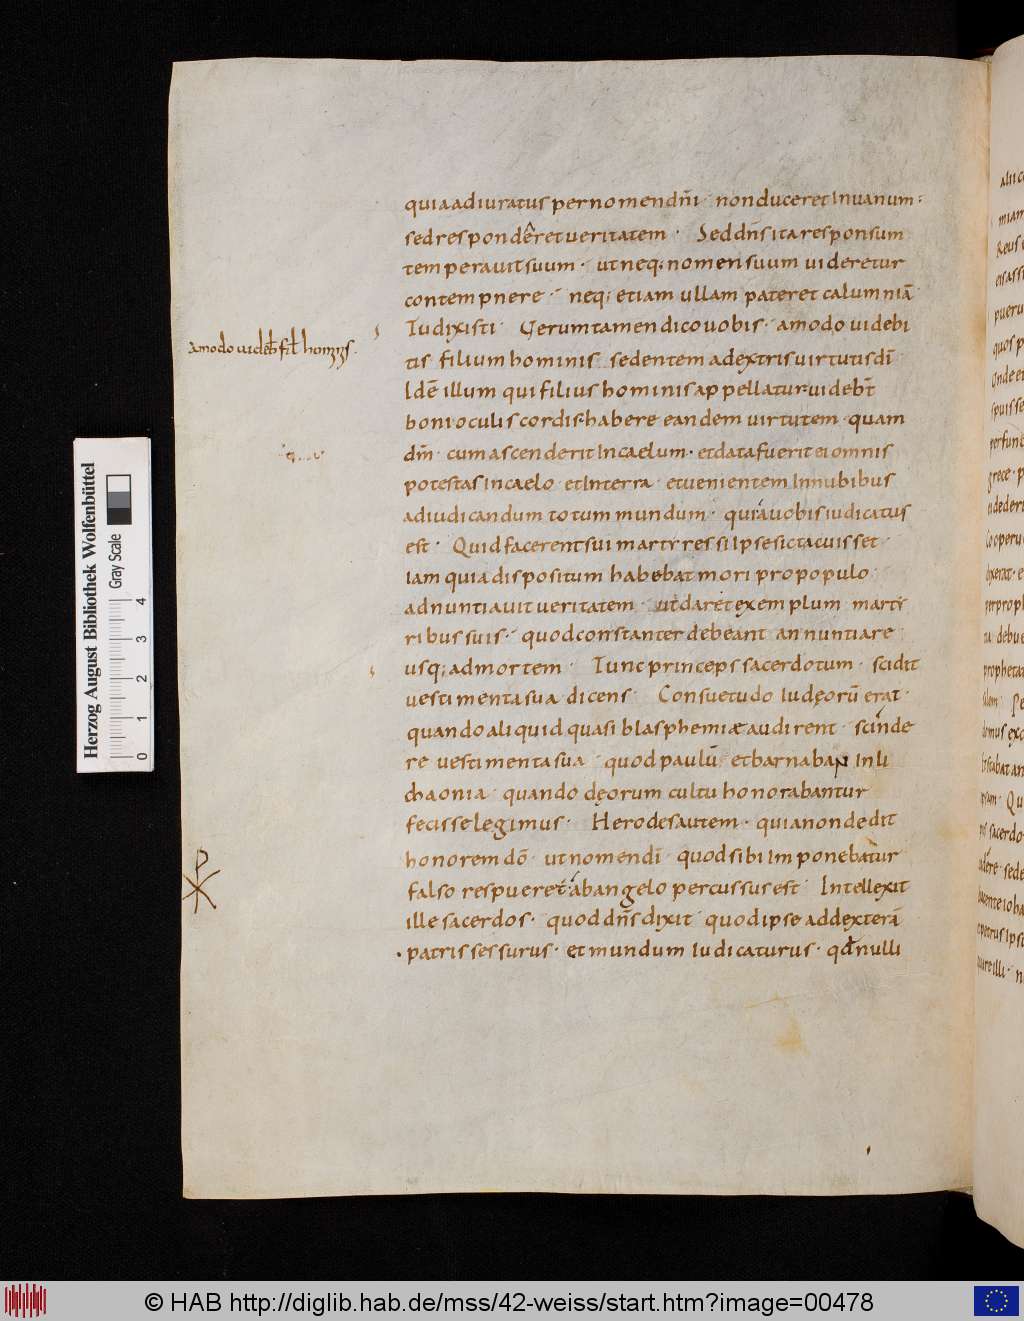 quia adiuratus per nomen dñi · non duceret In uanum ·
sed responderet ueritatem · Sed dñs ita responsum
temperauit suum · ut neq; nomen suum uideretur
contempnere · neq; etiam ullam pateret calumniā
Tu dixisti · Uerum tamen dico uobis · amodo uidebi
amodo uideb̄ fił hominis.
tis filium hominis sedentem adextris uirtutis dī
Idē illum qui filius hominis appellatur uidebt̄
boni oculis cordis habere eandem uirtutem · quam
dm̄ · cum ascenderit In caelum · et data fuerit ei omnis
potestas in caelo et In terra · et uenientem In nubibus
ad iudicandum totum mundum · qui a uobis iudicatus
est · Quid facerent sui martyres si Ipse sic tacuisset
Iam quia dispositum habebat mori pro populo
adnuntiauit ueritatem · ut daret exemplum marty
ribus suis · quod constanter debeant annuntiare
usq; ad mortem · Tunc princeps sacerdotum · scidit
uestimenta sua dicens · Consuetudo Iudęorū erat ·
quando aliquid quasi blasphemiæ audirent · scinde
re uestimenta sua · quod paulū et barnaban In li
chaonia · quando dęorum cultu honorabantur
fecisse legimus · Herodes autem · quia non dedit
honorem dō · ut nomen dī · quod sibi Imponebatur
falso respueret · ab angelo percussus est · Intellexit
ille sacerdos · quod dñs dixit quod ipse ad dexterā
· patris sessurus · et mundum Iudicaturus · qđ nulli
Herzog August Bibliothek Wolfenbüttel
Gray Scale
0 1 2 3 4
© HAB http://diglib.hab.de/mss/42-weiss/start.htm?image=00478